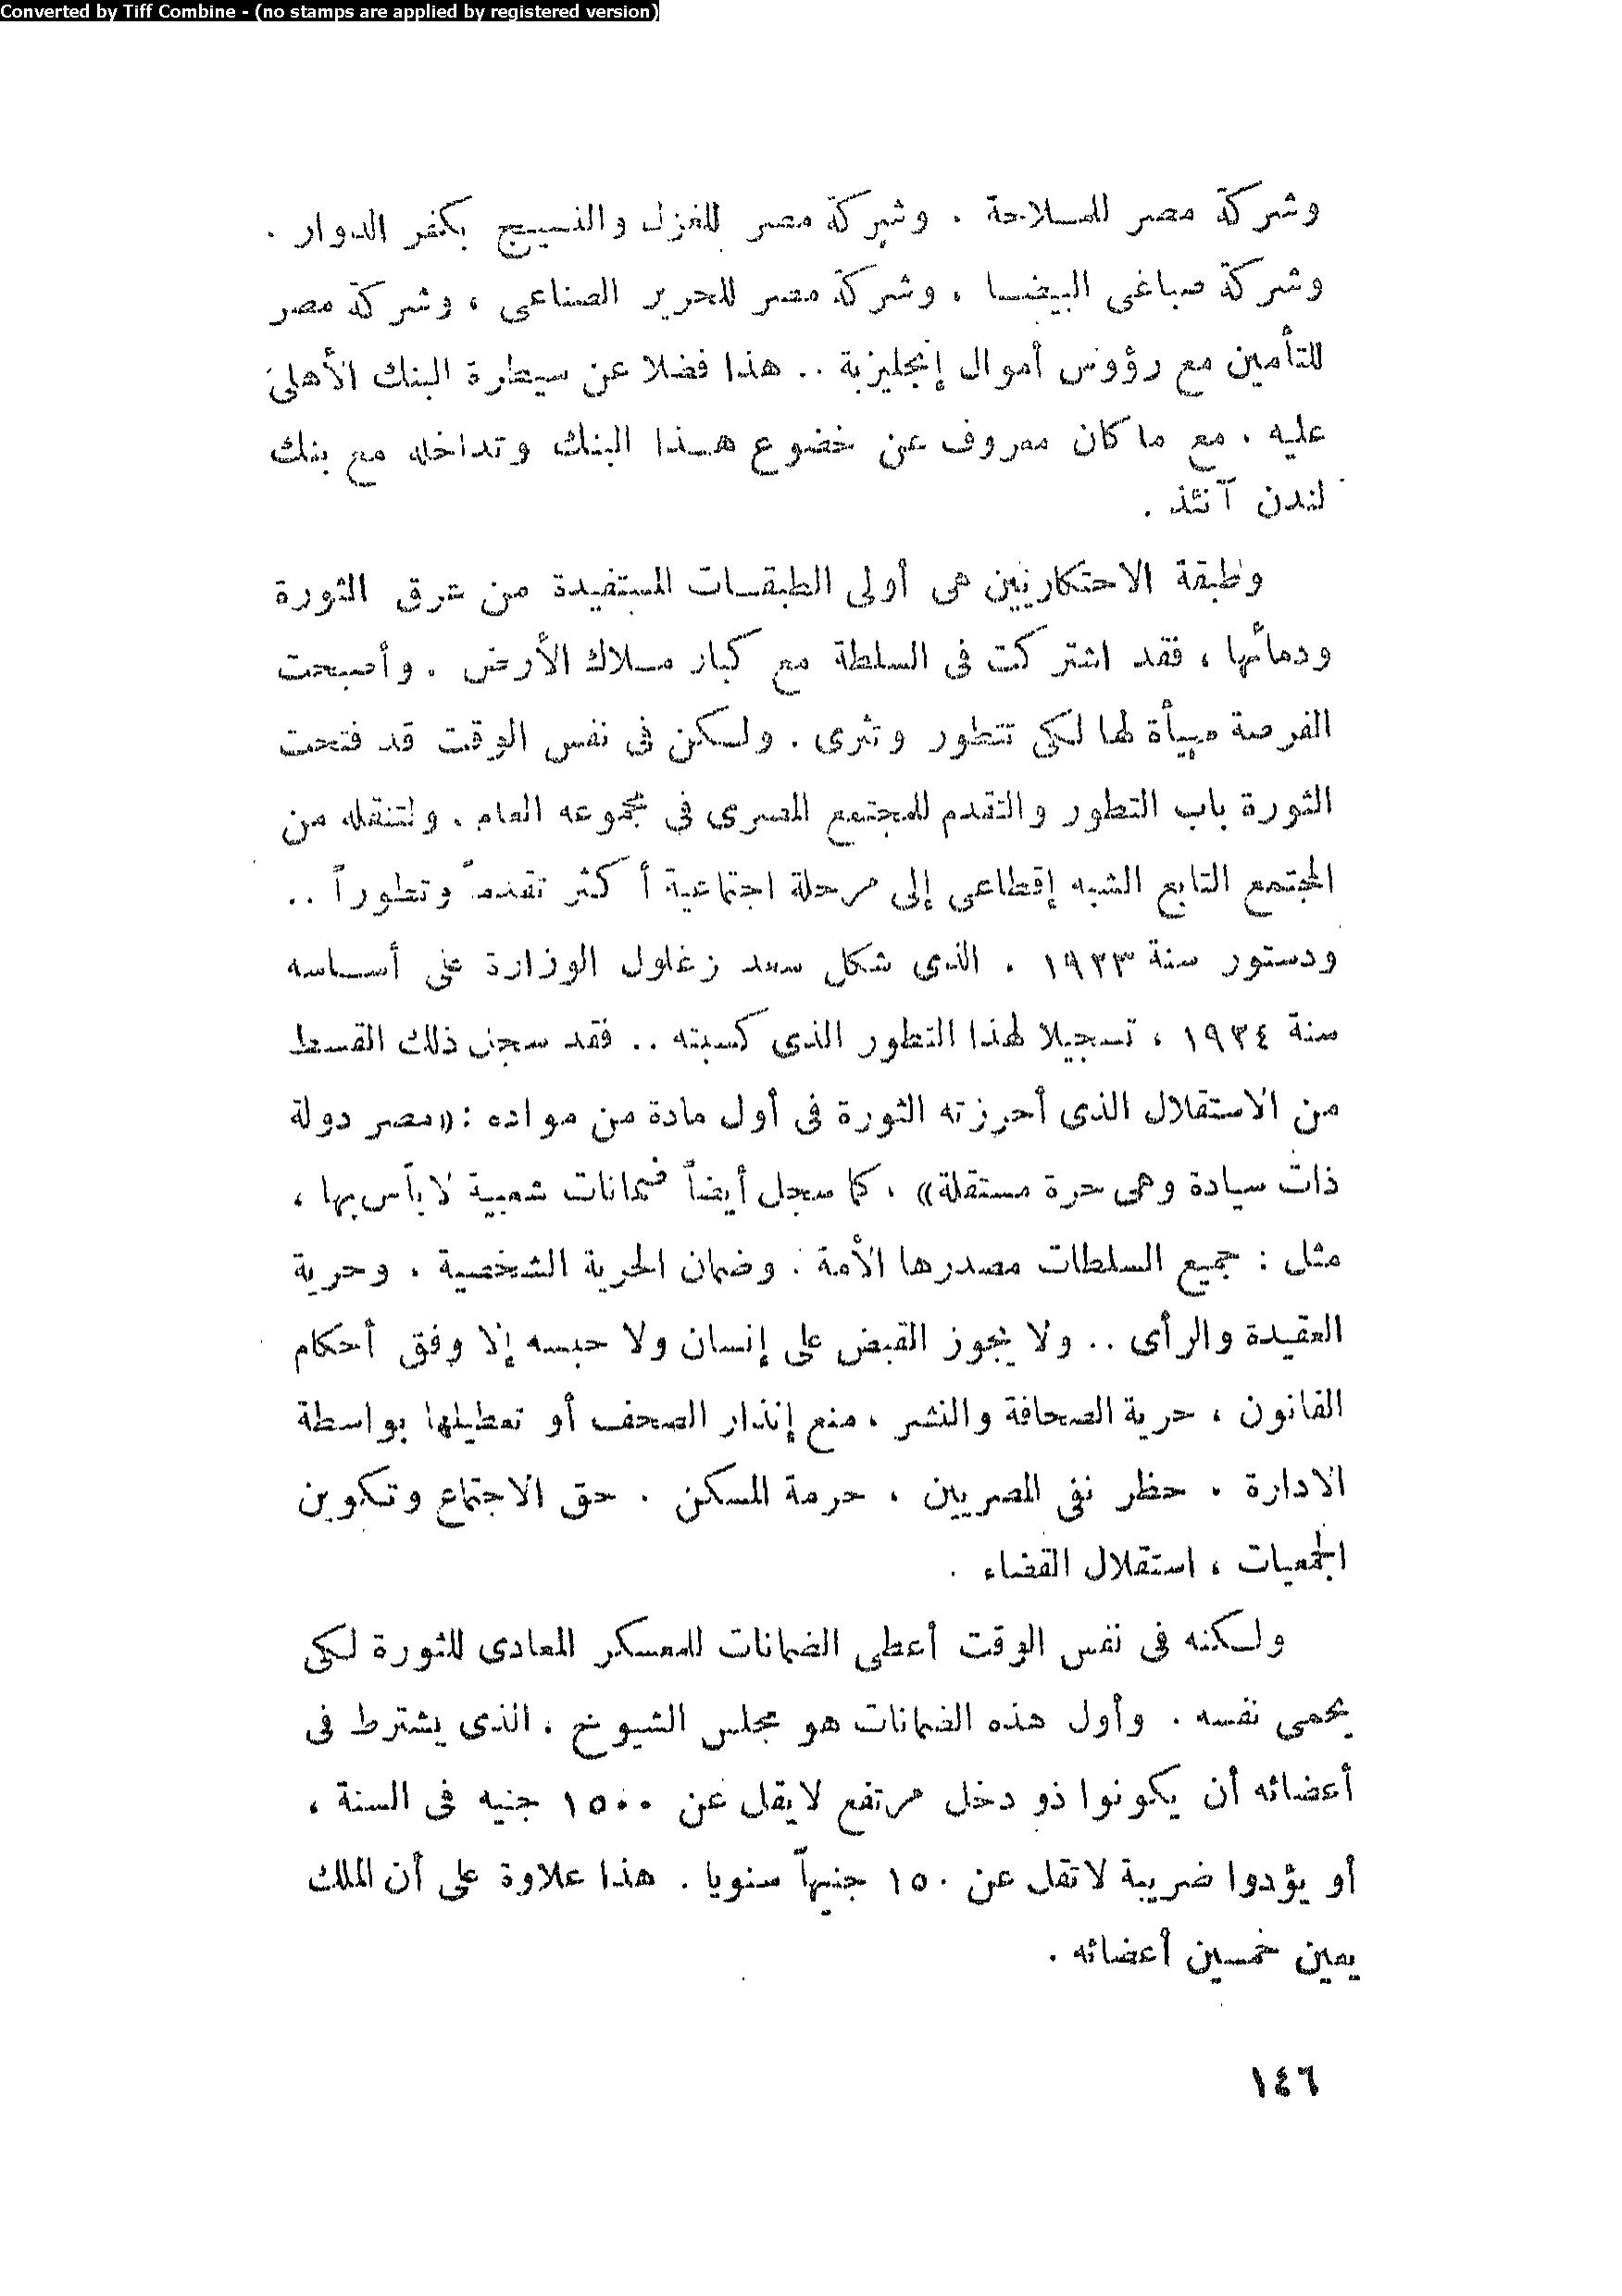 Converted by Tiff Combine - (no stamps are applied by registered version)
وشركة مصر للملاحة ، وشركة مصر للغزل والنسيج بكفر الدوار .
وشركة صباغى البيضا ، وشركة مصر للحرير الصناعى ، وشركة مصر
للتأمين مع رؤوس أموال إنجليزية .. هذا فضلا عن سيطرة البنك الأهلى
عليه ، مع ما كان معروف عن خضوع هذا البنك وتداخله مع بنك
لندن آنئذ .
وطبقة الاحتكاريين هى أولى الطبقات المستفيدة من عرق الثورة
ودمائها ، فقد اشتركت فى السلطة مع كبار ملاك الأرض . وأصبحت
الفرصة مهيأة لها لكى تتطور وتثرى . ولكن فى نفس الوقت قد فتحت
الثورة باب التطور والتقدم للمجتمع المصرى فى مجموعه العام . ولتنقله من
المجتمع التابع الشبه إقطاعى إلى مرحلة اجتماعية أكثر تقدماً وتطوراً ..
ودستور سنة ١٩٢٣ . الذى شكل سعد زغلول الوزارة على أساسه
سنة ١٩٢٤ ، تسجيلا لهذا التطور الذى كسبته .. فقد سجل ذلك القسط
من الاستقلال الذى أحرزته الثورة فى أول مادة من مواده : «مصر دولة
ذات سيادة وهى حرة مستقلة» ، كما سجل أيضاً ضمانات شعبية لا بأس بها ،
مثل : جميع السلطات مصدرها الأمة . وضمان الحرية الشخصية . وحرية
العقيدة والرأى .. ولا يجوز القبض على إنسان ولا حبسه إلا وفق أحكام
القانون ، حرية الصحافة والنشر ، منع إنذار الصحف أو تعطيلها بواسطة
الادارة . حظر نفى المصريين ، حرمة المسكن . حق الاجتماع وتكوين
الجمعيات ، استقلال القضاء .
ولكنه فى نفس الوقت أعطى الضمانات للمعسكر المعادى للثورة لكى
يحمى نفسه . وأول هذه الضمانات هو مجلس الشيوخ ، الذى يشترط فى
أعضائه أن يكونوا ذو دخل مرتفع لا يقل عن ١٥٠٠ جنيه فى السنة ،
أو يؤدوا ضريبة لا تقل عن ١٥٠ جنيهاً سنويا . هذا علاوة على أن الملك
يعين خمسين أعضائه .
١٤٦